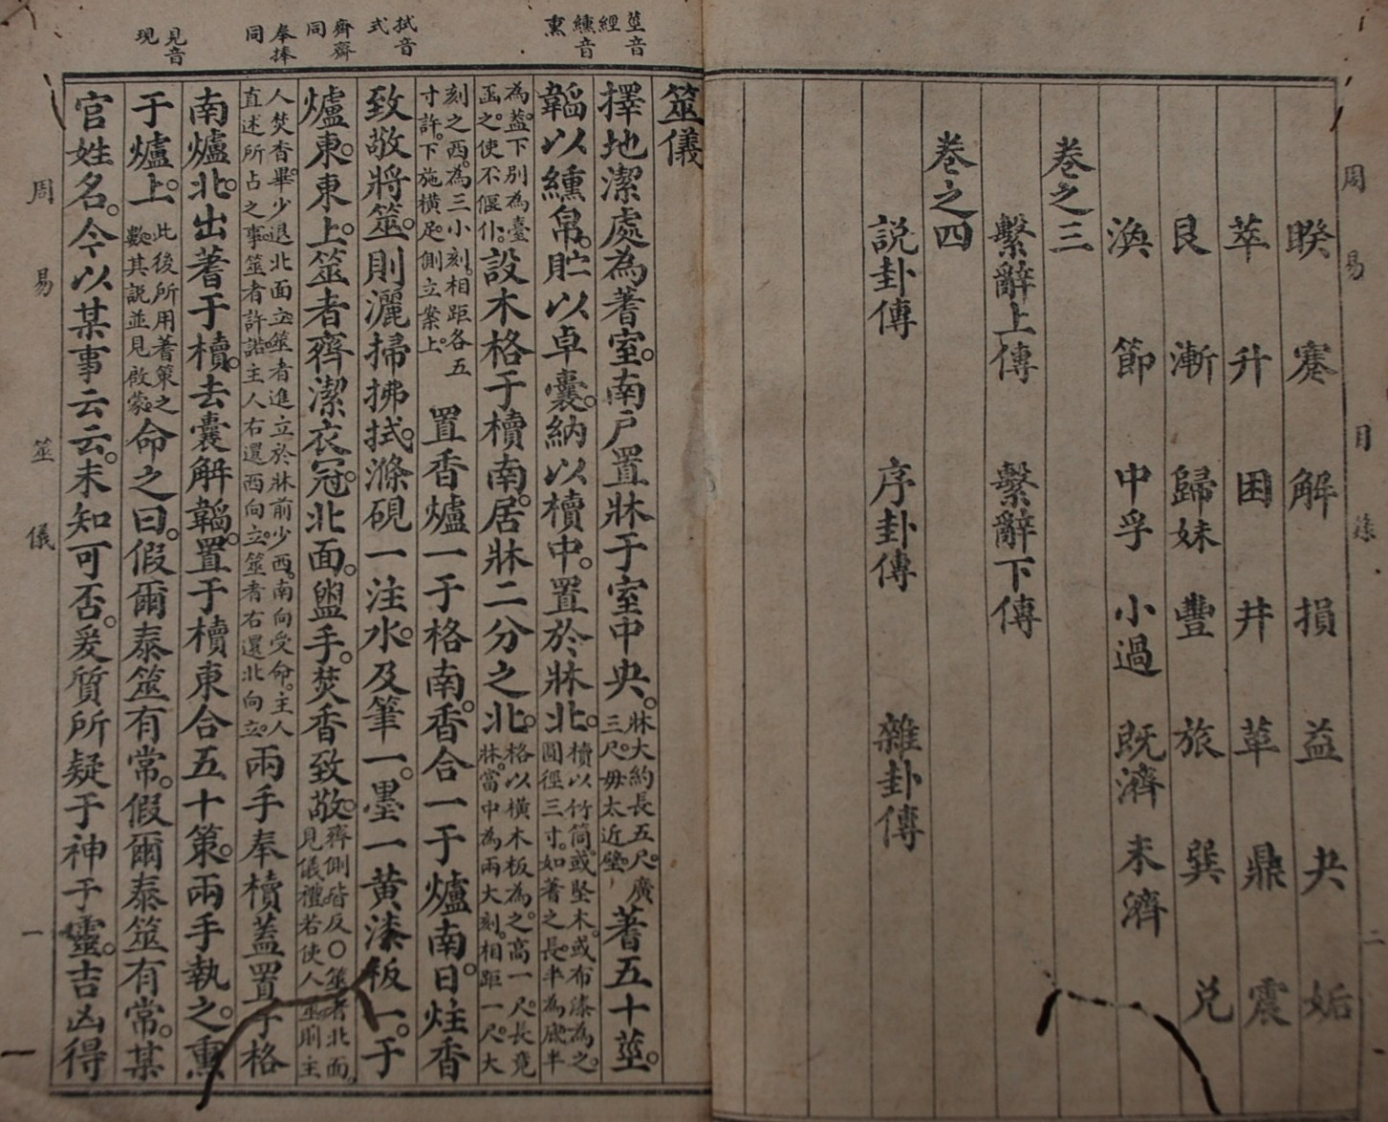 周易 目錄 二
睽 蹇 解 損 益 夬 姤
萃 升 困 井 革 鼎 震
艮 漸 歸妹 豐 旅 巽 兌
渙 節 中孚 小過 既濟 未濟
卷之三
繫辭上傳 繫辭下傳
卷之四
說卦傳 序卦傳 雜卦傳
莖音
經
纁音
熏
拭音
式
齊齊
同
奉捧
同
見音
現
筮儀
擇地潔處為蓍室。南戶置牀于室中央。牀大約長五尺。廣三尺。毋太近壁。蓍五十莖。
韜以纁帛。貯以皁囊。納以櫝中。置於牀北。櫝以竹筒。或堅木。或布漆為之。圓徑三寸。如蓍之長。半為底。半
為蓋。下別為臺函之。使不偃仆。設木格于櫝南。居牀二分之北。格以橫木板為之。高一尺。長竟牀。當中為兩大刻。相距一尺。大
刻之西。為三小刻。相距各五寸許。下施橫足。側立案上。 置香爐一于格南。香合一于爐南。日炷香
致敬將筮。則灑掃拂拭。滌硯一注水。及筆一。墨一黃漆板一。于
爐東。東上。筮者齊潔衣冠。北面。盥手。焚香致敬。齊側皆反○筮者北面。見儀禮若使人筮則主
人焚香畢。少退北面立。筮者進立於牀前少西。南向受命。主人直述所占之事。筮者許諾。主人右還西向立。筮者右還北向立。兩手奉櫝蓋置于格
南爐北。出蓍于櫝。去囊解韜。置于櫝東合五十策。兩手執之。熏
于爐上。此後所用蓍策之數其說並見啟蒙命之曰。假爾泰筮有常。假爾泰筮有常。某
官姓名。今以某事云云。未知可否。爰質所疑于神于靈。吉凶得
周易 筮儀 一